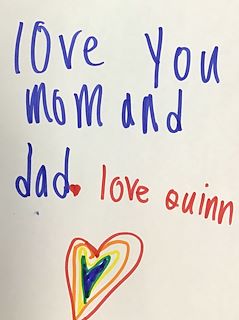 love you
mom and
dad. love Quinn